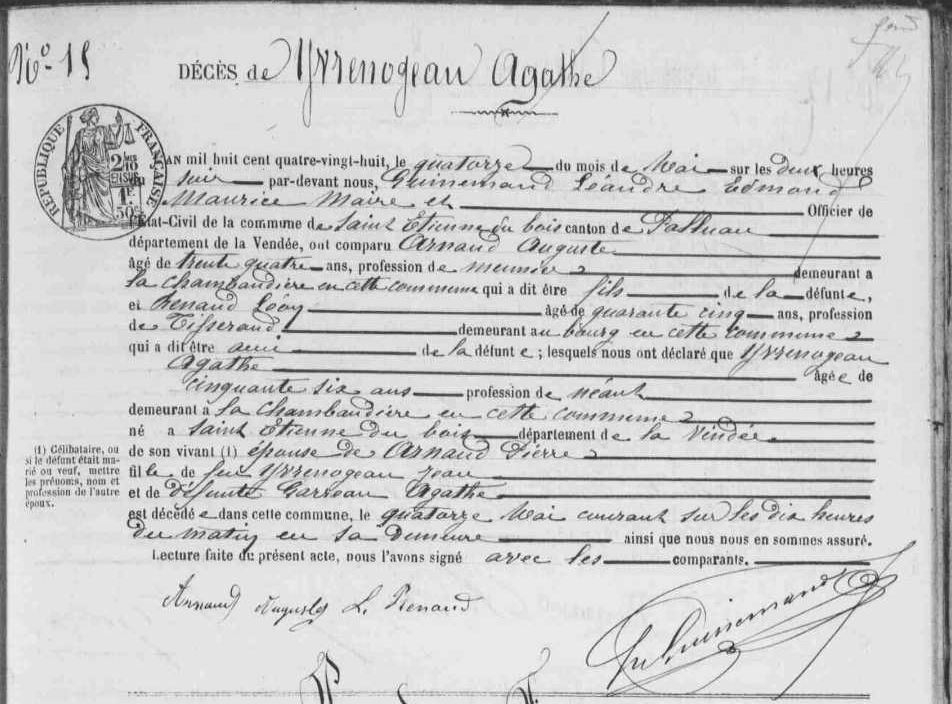 N° 15
DÉCÈS de Yzrenogeau Agathe
RÉPUBLIQUE FRANÇAISE
2/10 EN SUS
1F. 50c
AN mil huit cent quatre-vingt-huit, le quatorze du mois de Mai sur les deux heures
du soir par-devant nous, Guinemand Léandre Edmond
Maurice Maire et Officier de
l'État-Civil de la commune de Saint Etienne du bois canton de Palluau
département de la Vendée, ont comparu Arnaud Auguste
âgé de trente quatre ans, profession de meunier demeurant a
la chambaudière en cette commune qui a dit être fils de la défunte,
et Renaud Léon âgé de quarante cinq ans, profession
de Tisserand demeurant au bourg en cette commune
qui a dit être ami de la défunte ; lesquels nous ont déclaré que Yzrenogeau
Agathe âgée de
cinquante six ans profession de néant
demeurant à la chambaudière en cette commune
né a Saint Etienne du bois département de la Vendée
de son vivant (1) épouse de Arnaud Pierre
fille de feu Yzrenogeau Jean
et de défunte Agathe
est décédée dans cette commune, le quatorze Mai courant sur les dix heures
du matin en sa demeure ainsi que nous nous en sommes assuré.
Lecture faite du présent acte, nous l'avons signé avec les comparants.
(1) Célibataire, ou
si le défunt était ma-
rié ou veuf, mettre
les prénoms, nom et
profession de l'autre
époux.
Arnaud Auguste L. Renaud
Guinemand